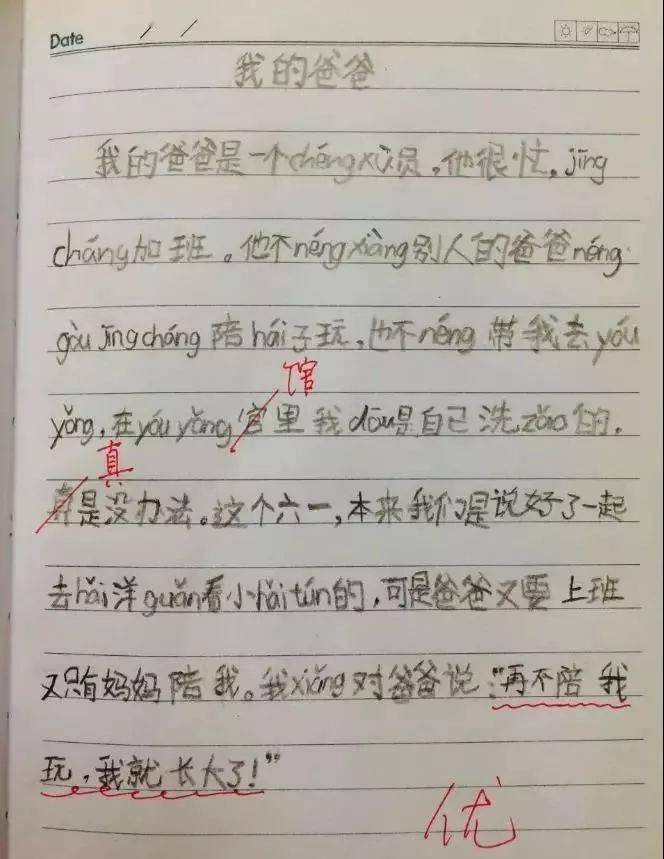 Date / /
我的爸爸
我的爸爸是一个chéngxù员,他很忙,jīng
cháng加班。他不néngxiàng别人的爸爸néng
gòu jīngcháng陪hái子玩,也不néng带我去yóu
馆
yǒng,在yóuyǒng官里我dōu是自己洗zǎo的,
真
是没办法。这个六一,本来我们是说好了一起
去hǎi洋guǎn看小hǎitún的,可是爸爸又要上班
又只有妈妈陪我。我xiǎng对爸爸说:"再不陪我
玩,我就长大了!"
优